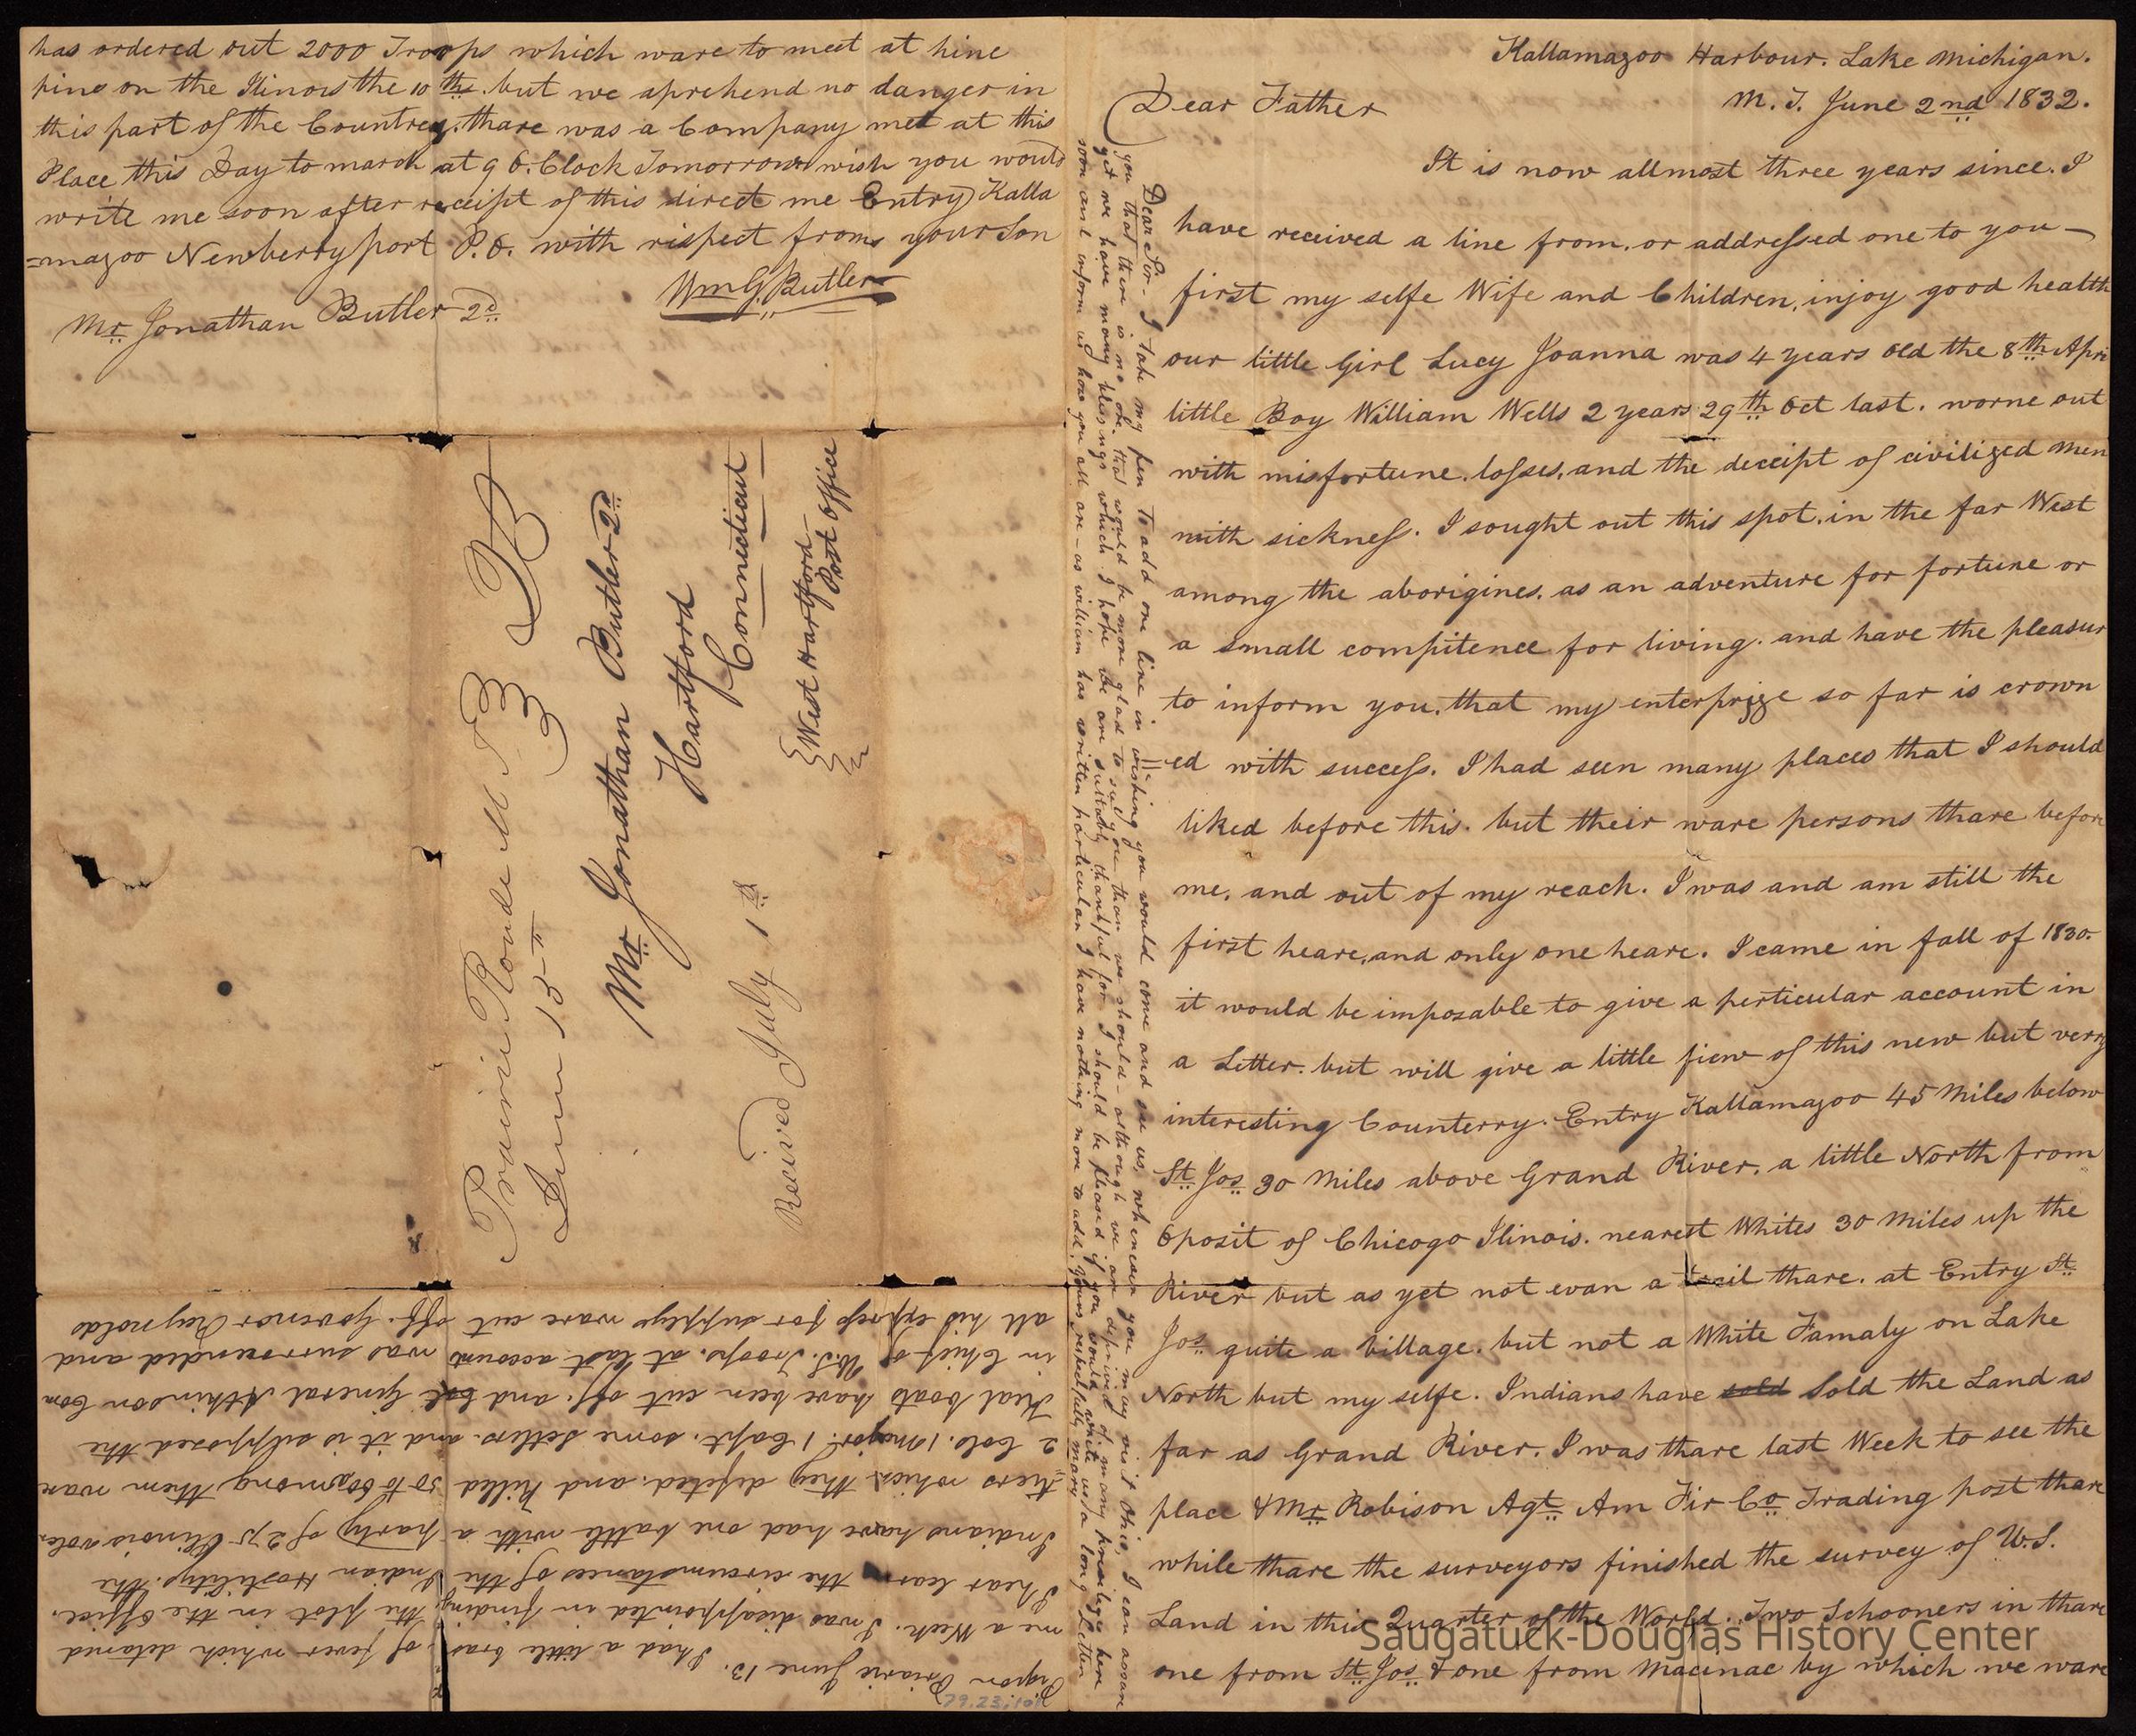 Kallamazoo Harbour. Lake Michigan.
M. T. June 2nd 1832.
Dear Father
It is now allmost three years since. I
have received a line from, or addressed one to you —
first my selfe Wife and Children, injoy good health
our little Girl Lucy Joanna was 4 years old the 8th Apri
little Boy William Wells 2 years 29th Oct last. worne out
with misfortune. losses, and the deceipt of civilized men
with sickness. I sought out this spot, in the far West
among the aborigines. as an adventure for fortune or
a small compitence for living. and have the pleasur
to inform you, that my enterprize so far is crown
=ed with success. I had seen many places that I should
liked before this. but their ware persons thare before
me, and out of my reach. I was and am still the
first heare, and only one heare. I came in fall of 1830.
it would be imposable to give a perticular account in
a Letter. but will give a little view of this new but verry
interesting Counterry. Entry Kallamazoo 45 Miles below
St Jos 30 Miles above Grand River, a little North from
Oposit of Chicogo Ilinois. nearest Whites 30 Miles up the
River but as yet not evan a trail thare. at Entry St
Jos quite a village. but not a White Famaly on Lake
North but my selfe. Indians have sold Sold the Land as
far as Grand River. I was thare last Week to see the
place & Mr Robison Agt Am Fir Co Trading post thare
while thare the surveyors finished the survey of U.S.
Land in this Quarter of the World. Two Schooners in thare
one from St Jos & one from Macinac by which we ware
Pigion Prairie June 13. I had a little
of fever which detained
me a Week. I was disappointed in finding the plot in the Office.
I hear learn the circumstances of the Indian Hostilitys. the
Indians have had one battle with a party of 275 Ilinois volen
teers which they defeted, and killed 50 to 60 among them ware
2 Cols. 1 Major. 1 Capt. some Setlers. and it is supposed the
Keal boats have been cut off. and General Atkinson Com
in Chief of U.S. Troops. at last account was surrounded and
all his express for supplys ware cut off. Govenor Raynolds
has ordered out 2000 Troops which ware to meet at hine
pine on the Ilinois the 10th. but we aprehend no danger in
this part of the Countrey. thare was a Company met at this
Place this Day to march at 9 O. Clock Tomorrow wish you would
write me soon after receipt of this direct me Entry Kalla
=mazoo Newberryport P.O. with rispect from your Son
Wm G. Butler
Mr Jonathan Butler 2d
Dear Sir - I take my pen to add one line in wishing you would come and see us, whenever you may visit Ohio, I can assure
you that there is no one that would be more glad to see you than we should - although we are deprived of many priviliges here
yet we have many blessings which I hope we are suitably thankful for I should be pleased if you would write us a long Letter
soon and inform us how you all are - as william has written particular I have nothing more to add, yours respectfully Mary
Prairie Ronde M T
June 15
Mr Jonathan Butler 2d
Hartford
Connecticut
West Hartford
Post Office
Received July 1st
79.23.101
Saugatuck-Douglas History Center